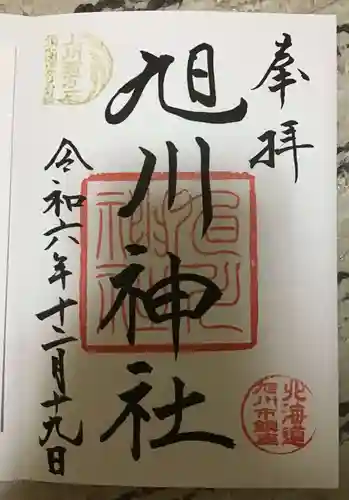 奉拝
旭川神社
令和六年十二月十九日
旭川神社
北海道
旭川市鎮座